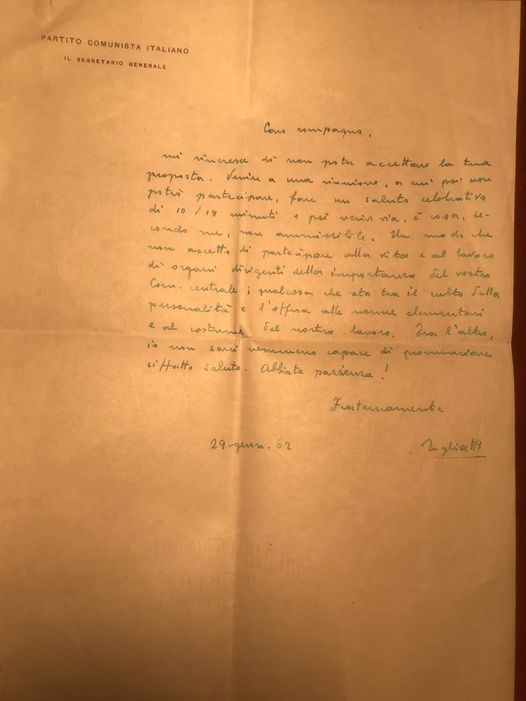 PARTITO COMUNISTA ITALIANO
IL SEGRETARIO GENERALE
Caro compagno,
mi rincresce di non poter accettare la tua
proposta. Venire a una riunione, a cui poi non
potrò partecipare, fare un saluto celebrativo
di 10 / minuti e poi venir via, è cosa, se-
condo me, non ammissibile. Un modo che
non accetto di partecipare alla vita e al lavoro
di organi dirigenti della importanza del vostro
Com. centrale; qualcosa che sta tra il culto della
personalità e l'offesa alle norme elementari
e al costume del nostro lavoro. Tra l'altro,
io non sarei nemmeno capace di pronunciare
siffatto saluto. Abbiate pazienza!
Fraternamente
29 genn. 62
Togliatti